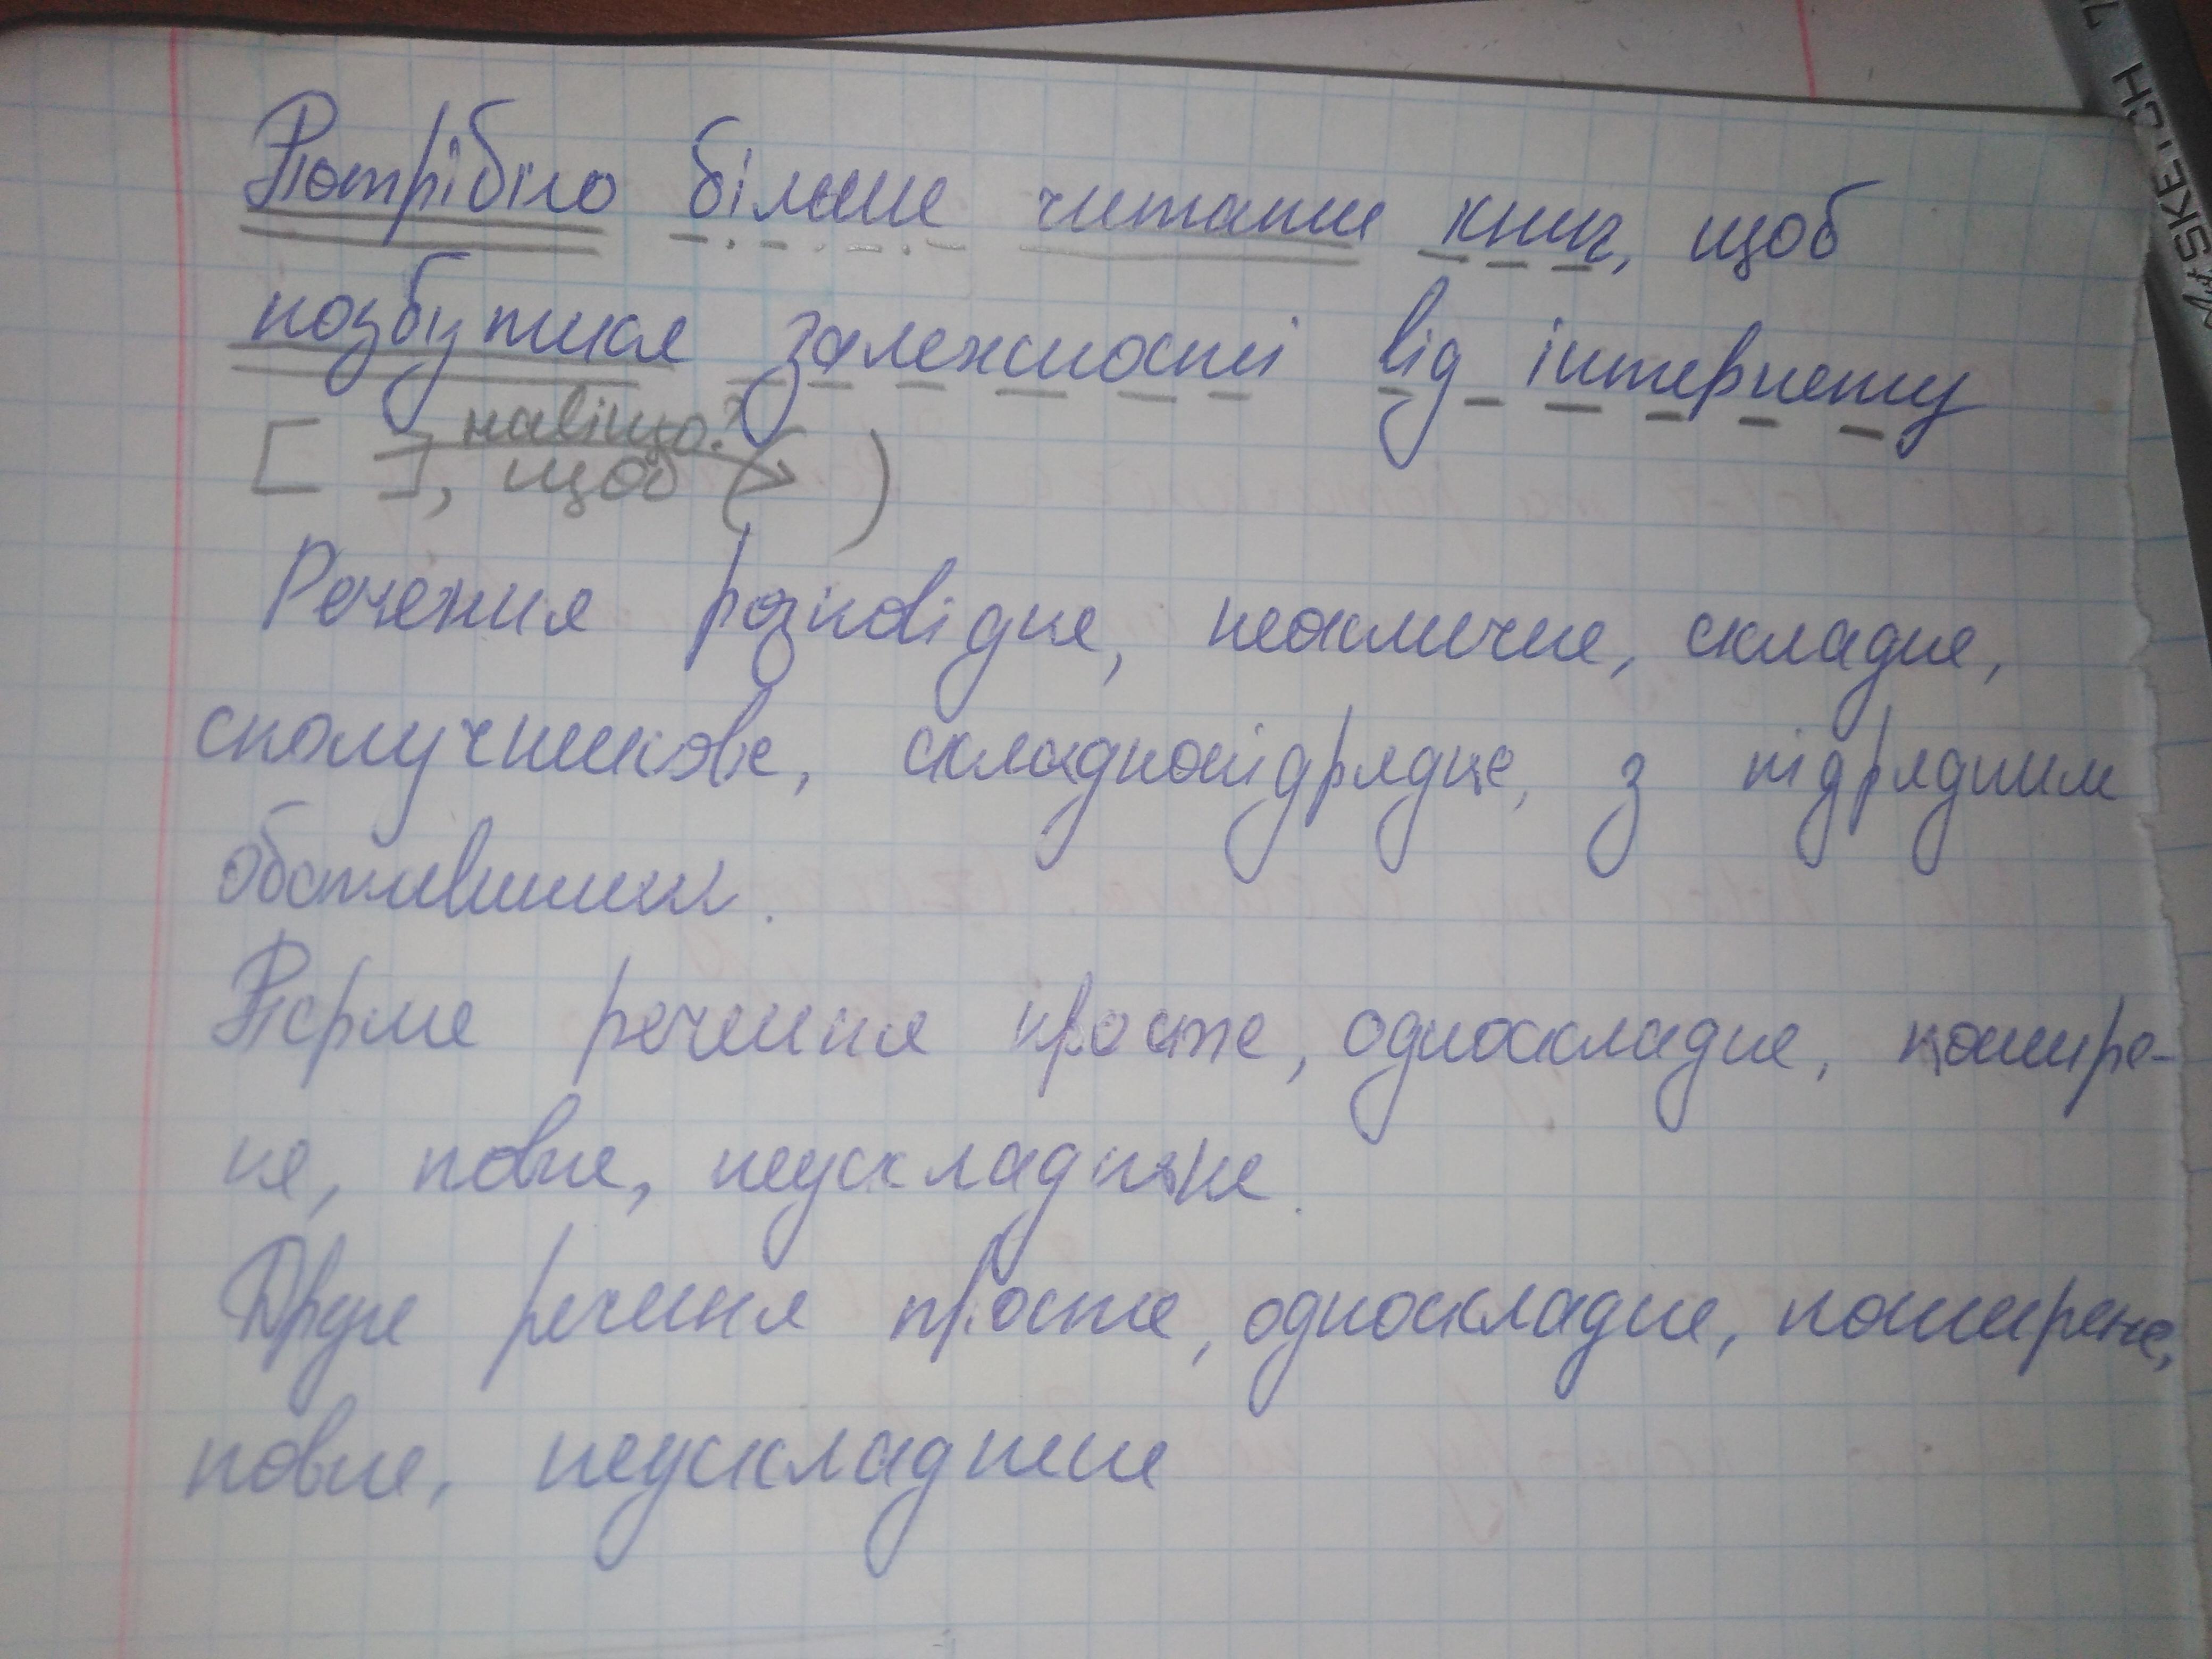 Потрібно більше читати книг, щоб
позбутися залежності від інтернету
навіщо?
[ ], щоб ( )
Речення розповідне, неокличне, складне,
сполучникове, складнопідрядне, з підрядним
обставинним.
Перше речення просте, односкладне, пошире-
не, повне, неускладнене.
Друге речення просте, односкладне, поширене,
повне, неускладнене
SKETCH